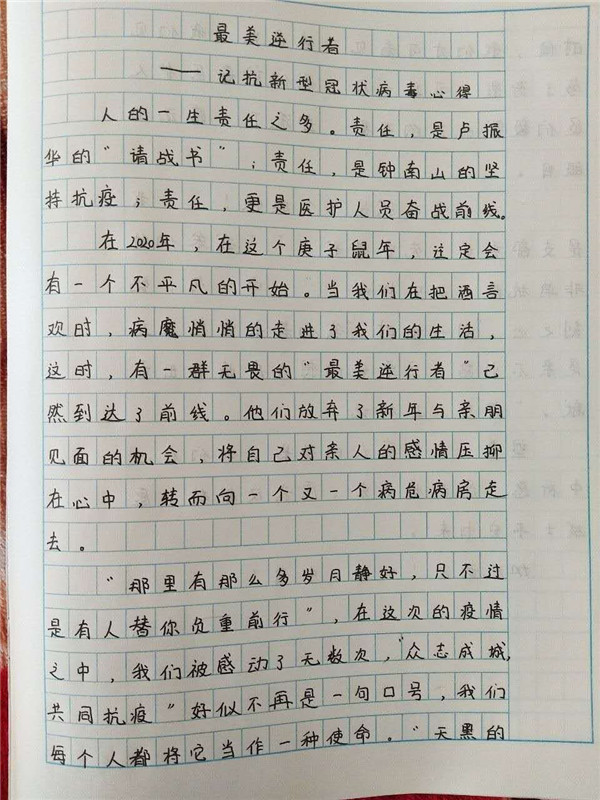 最美逆行者
——记抗新型冠状病毒心得
人的一生责任之多。责任，是卢振
华的“请战书”；责任，是钟南山的坚
持抗疫；责任，更是医护人员奋战前线。
在2020年，在这个庚子鼠年，注定会
有一个不平凡的开始。当我们在把酒言
欢时，病魔悄悄的走进了我们的生活，
这时，有一群无畏的“最美逆行者”已
然到达了前线。他们放弃了新年与亲朋
见面的机会，将自己对亲人的感情压抑
在心中，转而向一个又一个病危病房走
去。
“那里有那么多岁月静好，只不过
是有人替你负重前行”，在这次的疫情
之中，我们被感动了无数次，“众志成城，
共同抗疫”好似不再是一句口号，我们
每个人都将它当作一种使命。“天黑的